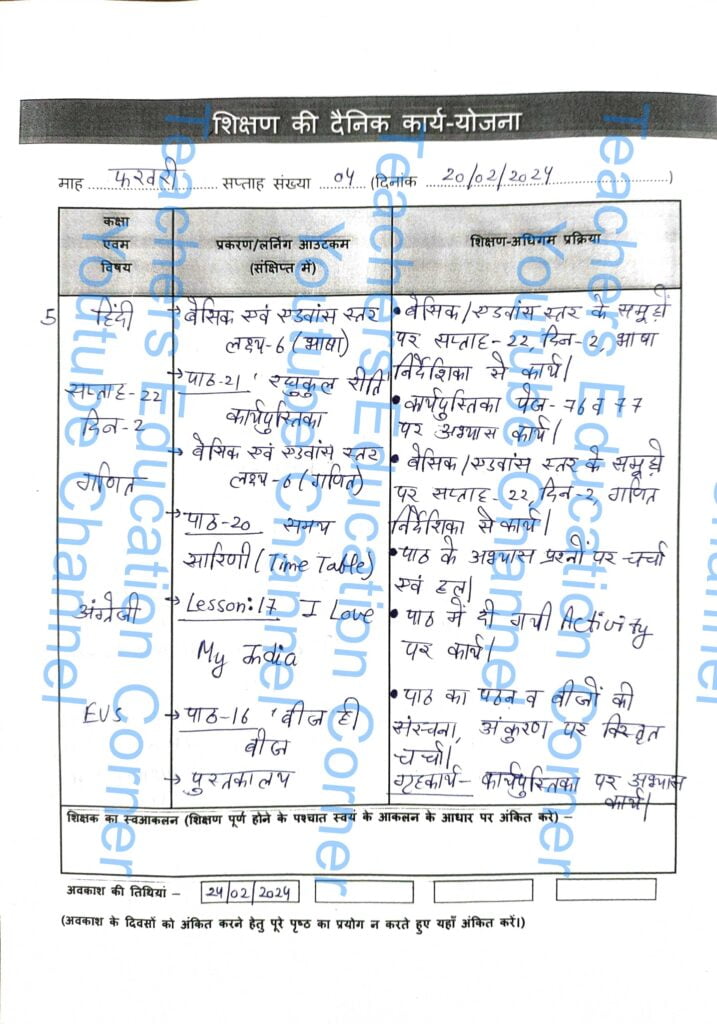 शिक्षण की दैनिक कार्य-योजना
माह फरवरी सप्ताह संख्या 04 (दिनांक 20/02/2024)
कक्षा एवम विषय
प्रकरण/लर्निंग आउटकम (संक्षिप्त में)
शिक्षण-अधिगम प्रक्रिया
5 हिंदी
सप्ताह-22
दिन-2
→ बेसिक एवं एडवांस स्तर
लक्ष्य-6 (भाषा)
→ पाठ-21 'रघुकुल रीति'
कार्यपुस्तिका
• बेसिक/एडवांस स्तर के समूहों
पर सप्ताह-22, दिन-2, भाषा
निर्देशिका से कार्य।
• कार्यपुस्तिका पेज-76 व 77
पर अभ्यास कार्य।
गणित
→ बेसिक एवं एडवांस स्तर
लक्ष्य-6 (गणित)
→ पाठ-20 समय
सारिणी (Time Table)
• बेसिक/एडवांस स्तर के समूहों
पर सप्ताह-22, दिन-2, गणित
निर्देशिका से कार्य।
• पाठ के अभ्यास प्रश्नों पर चर्चा
एवं हल।
अंग्रेजी
→ Lesson:17 I Love
My India
• पाठ में दी गयी Activity
पर कार्य।
EVS
→ पाठ-16 'बीज ही
बीज
→ पुस्तकालय
• पाठ का पठन व बीजों की
संरचना, अंकुरण पर विस्तृत
चर्चा।
गृहकार्य- कार्यपुस्तिका पर अभ्यास
कार्य।
शिक्षक का स्वआकलन (शिक्षण पूर्ण होने के पश्चात स्वयं के आकलन के आधार पर अंकित करें) –
अवकाश की तिथियां – 24/02/2024
(अवकाश के दिवसों को अंकित करने हेतु पूरे पृष्ठ का प्रयोग न करते हुए यहाँ अंकित करें।)
Teachers Education Corner
Youtube Channel
Teachers Education Corner
Youtube Channel
Teachers Education Corner
Youtube Channel